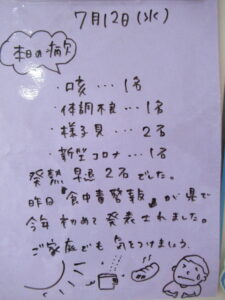 7月12日(水)
本日の病欠
・口咳…1名
・体調不良…1名
・様子見…2名
・新型コロナ…1名
発熱 早退 2名でした。
昨日『食中毒警報』が県で
今年初めて発表されました。
ご家庭でも気をつけましょう。